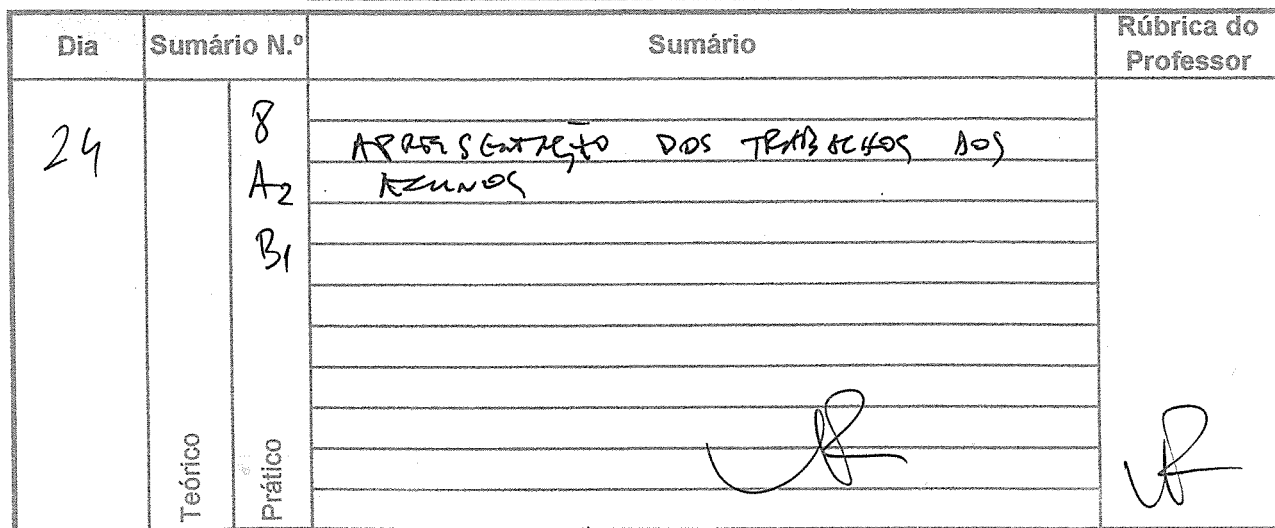 Dia Sumário N.º Sumário Rúbrica do Professor
24 8 APRESENTAÇÃO DOS TRABALHOS AOS
A2 ALUNOS
B1
Teórico
Prático